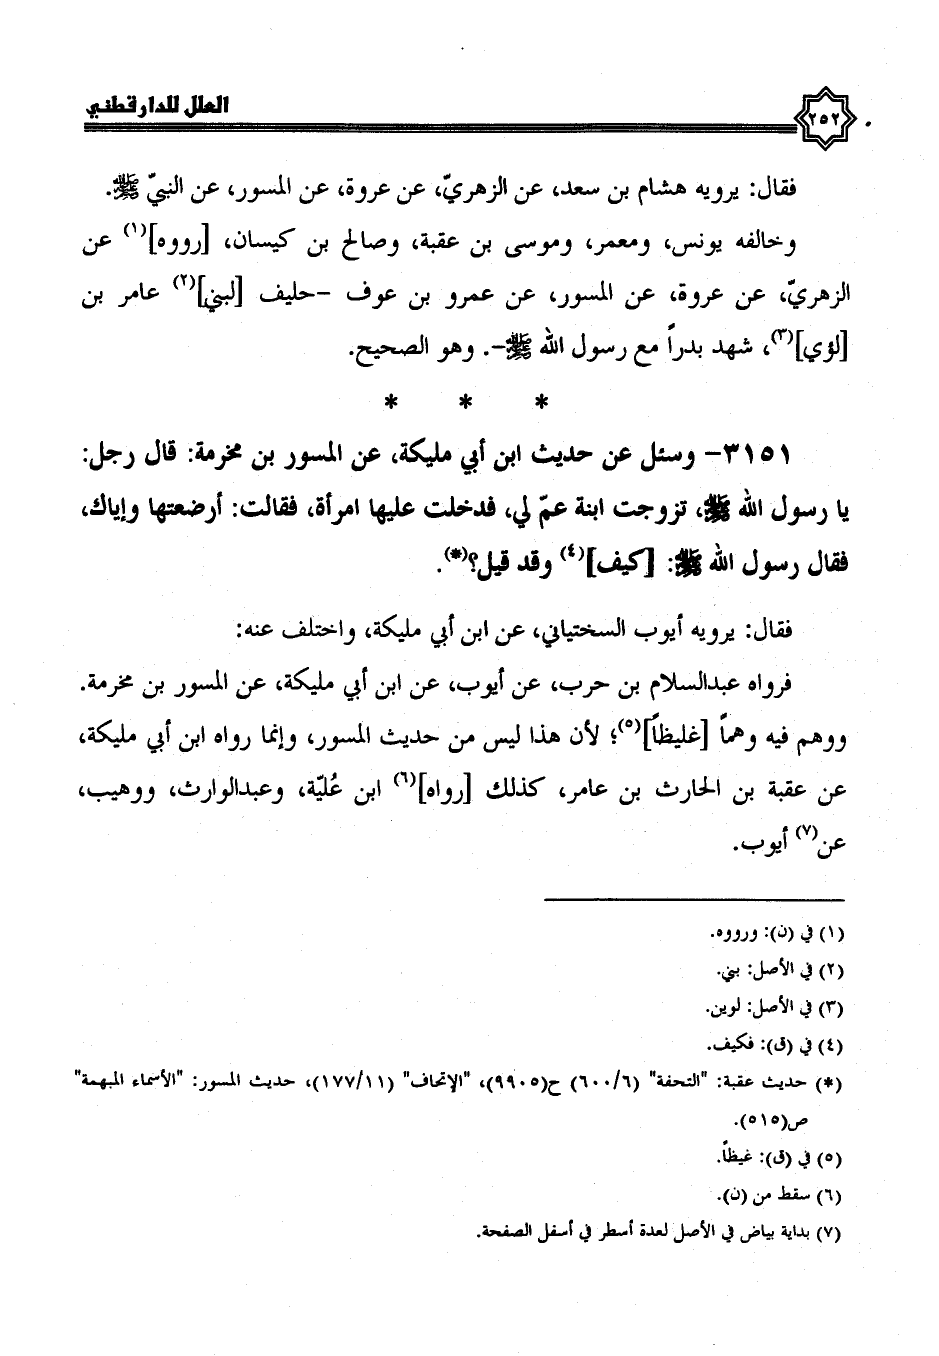 العلل للدارقطني
٢٥٢
فقال: يرويه هشام بن سعد، عن الزهريّ، عن عروة، عن المسور، عن النبيّ ﷺ.
وخالفه يونس، ومعمر، وموسى بن عقبة، وصالح بن كيسان، [رووه](١) عن
الزهريّ، عن عروة، عن المسور، عن عمرو بن عوف -حليف [لبني](٢) عامر بن
[لؤي](٣)، شهد بدراً مع رسول الله ﷺ-. وهو الصحيح.
* * *
٣١٥١- وسئل عن حديث ابن أبي مليكة، عن المسور بن مخرمة: قال رجل:
يا رسول الله ﷺ، تزوجت ابنة عمّ لي، فدخلت عليها امرأة، فقالت: أرضعتها وإياك،
فقال رسول الله ﷺ: [كيف](٤) وقد قيل؟(*).
فقال: يرويه أيوب السختياني، عن ابن أبي مليكة، واختلف عنه:
فرواه عبدالسلام بن حرب، عن أيوب، عن ابن أبي مليكة، عن المسور بن مخرمة.
ووهم فيه وهماً [غليظاً](٥)؛ لأن هذا ليس من حديث المسور، وإنما رواه ابن أبي مليكة،
عن عقبة بن الحارث بن عامر، كذلك [رواه](٦) ابن عُليّة، وعبدالوارث، ووهيب،
عن(٧) أيوب.
(١) في (ن): ورووه.
(٢) في الأصل: بني.
(٣) في الأصل: لوين.
(٤) في (ق): فكيف.
(*) حديث عقبة: "التحفة" (٦/٦٠٠) ح(٩٩٠٥)، "الإتحاف" (١١/١٧٧)، حديث المسور: "الأسماء المبهمة"
ص(٥١٥).
(٥) في (ق): غيظاً.
(٦) سقط من (ن).
(٧) بداية بياض في الأصل لعدة أسطر في أسفل الصفحة.